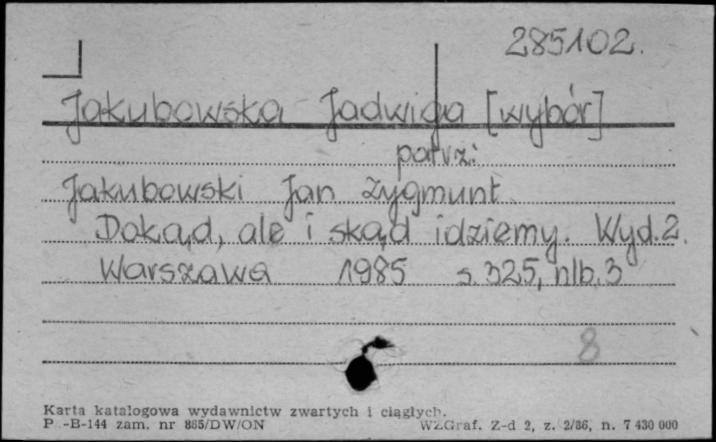 285102.
Jakubowska Jadwiga [wybór]
patrz:
Jakubowski Jan Zygmunt
Dokąd, ale i skąd idziemy. Wyd. 2.
Warszawa 1985 s. 325, nlb. 3
8
Karta katalogowa wydawnictw zwartych i ciągłych.
P -B-144 zam. nr 865/DW/ON WZGraf. Z-d 2, z. 2/86, n. 7 430 000